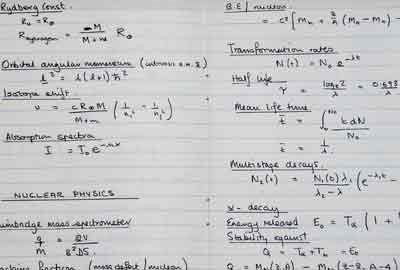 Rydberg Const.
R∞ = R∞
R hydrogen = M / M+m R∞
Orbital angular momentum (intrinsic
l² = l(l+1)ħ²
Isotope shift.
ν = cR∞M / M+m (1/n₁² - 1/n₂²)
Absorption spectra
I = I₀e
NUCLEAR PHYSICS
mass spectrometer
q/M =
fraction (mass defect / nucleon)
B.E / nucleon
= c² [Mn + (Mn - Mn) -
Transformation rates
N(t) = N₀ e^-λt
Half life
τ = loge2 / λ = 0.693
Mean life time
t̄ = ∫ t dN / N₀
t̄ = 1/λ
Multistage decays.
N₂(t) = N₁(0)λ₁ / λ₂ - λ (e^-λ₁t -
α - decay
Energy released E₀ = Tα (1 +
Stability against
Q = Tα + Tb = E₀
Q = (Z,A) - (Z-2, A-4)